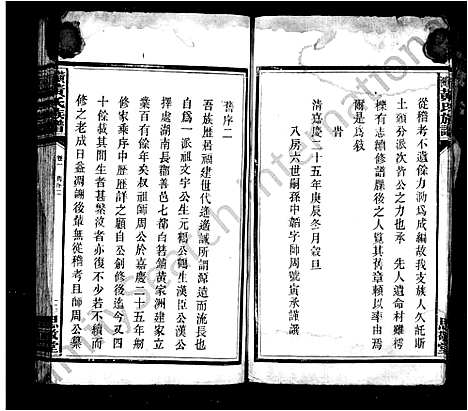 從稽考不遺餘力勒為成編故我支族人久託斯
土頭分派次皆公之力也承 先人遺命村雖樗
櫟有志續修譜牒後之人覽其舊章賴以率由焉
爾是為敘
旹
清嘉慶二十五年庚辰冬月穀旦
八房六世嗣孫中韜字師周號寅承謹譔
舊序二
吾族歷居福建世代遙遠誠所謂源遠而流長也
自為一派祖文字公生元楊公鸛生漢臣公漢公
擇處湖南長瀏善邑七都白箬鋪黃家洲建家立
業百有餘年矣叔祖師周公於嘉慶二十五年剏
修家乘序中歷歷詳之顧自公創修後迄今又四
十餘載其間生者甚繁歿者亦復不少若不續而
修之老成日益凋謝後輩無從稽考且師周公纂
黃氏族譜
卷一 舊序二
Search International